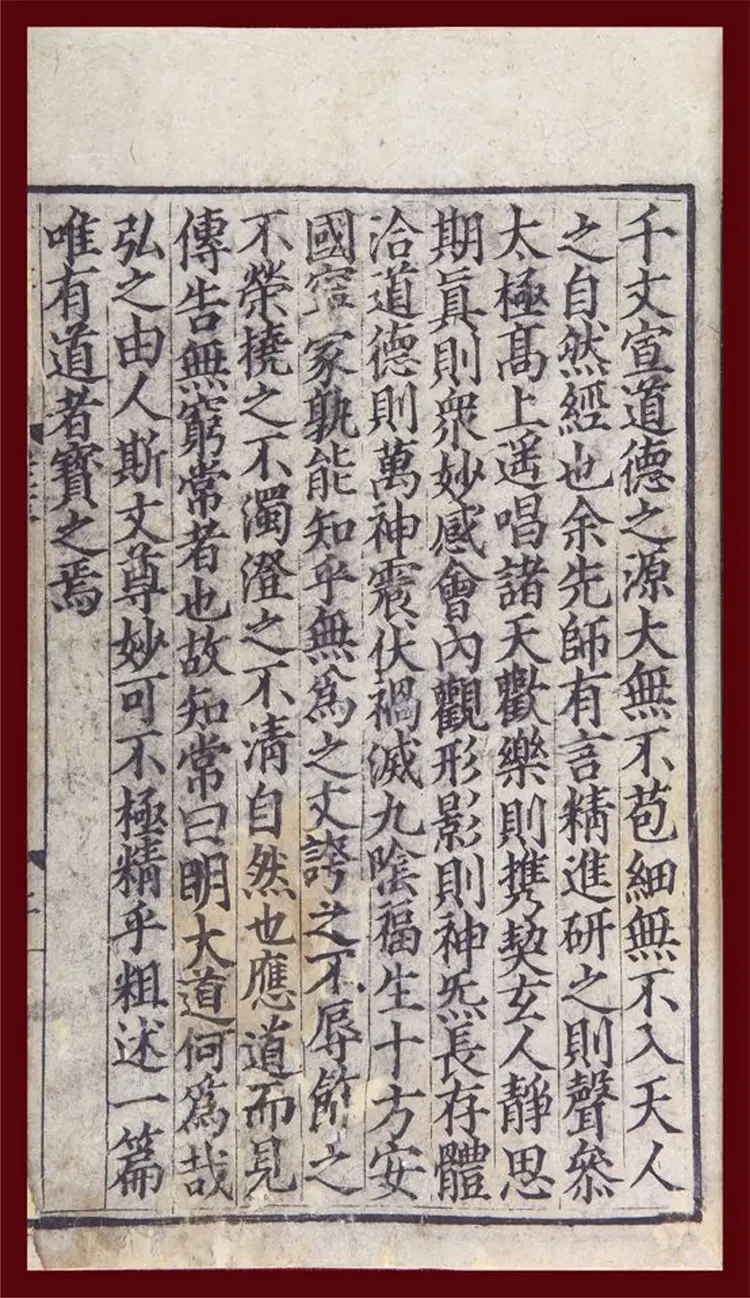 千文宣道德之源大無不苞細無不入天人
之自然經也余先師有言精進研之則聲叅
太極髙上遥唱諸天歡樂則擕契玄人靜思
期眞則衆妙感會內觀形影則神炁長存體
洽道德則萬神震伏禍滅九隂福生十方安
國寧家孰能知乎無爲之文誇之不辱飾之
不榮撓之不濁澄之不清自然也應道而見
傳告無窮常者也故知常曰明大道何爲哉
弘之由人斯文尊妙可不極精乎粗述一篇
唯有道者寶之焉